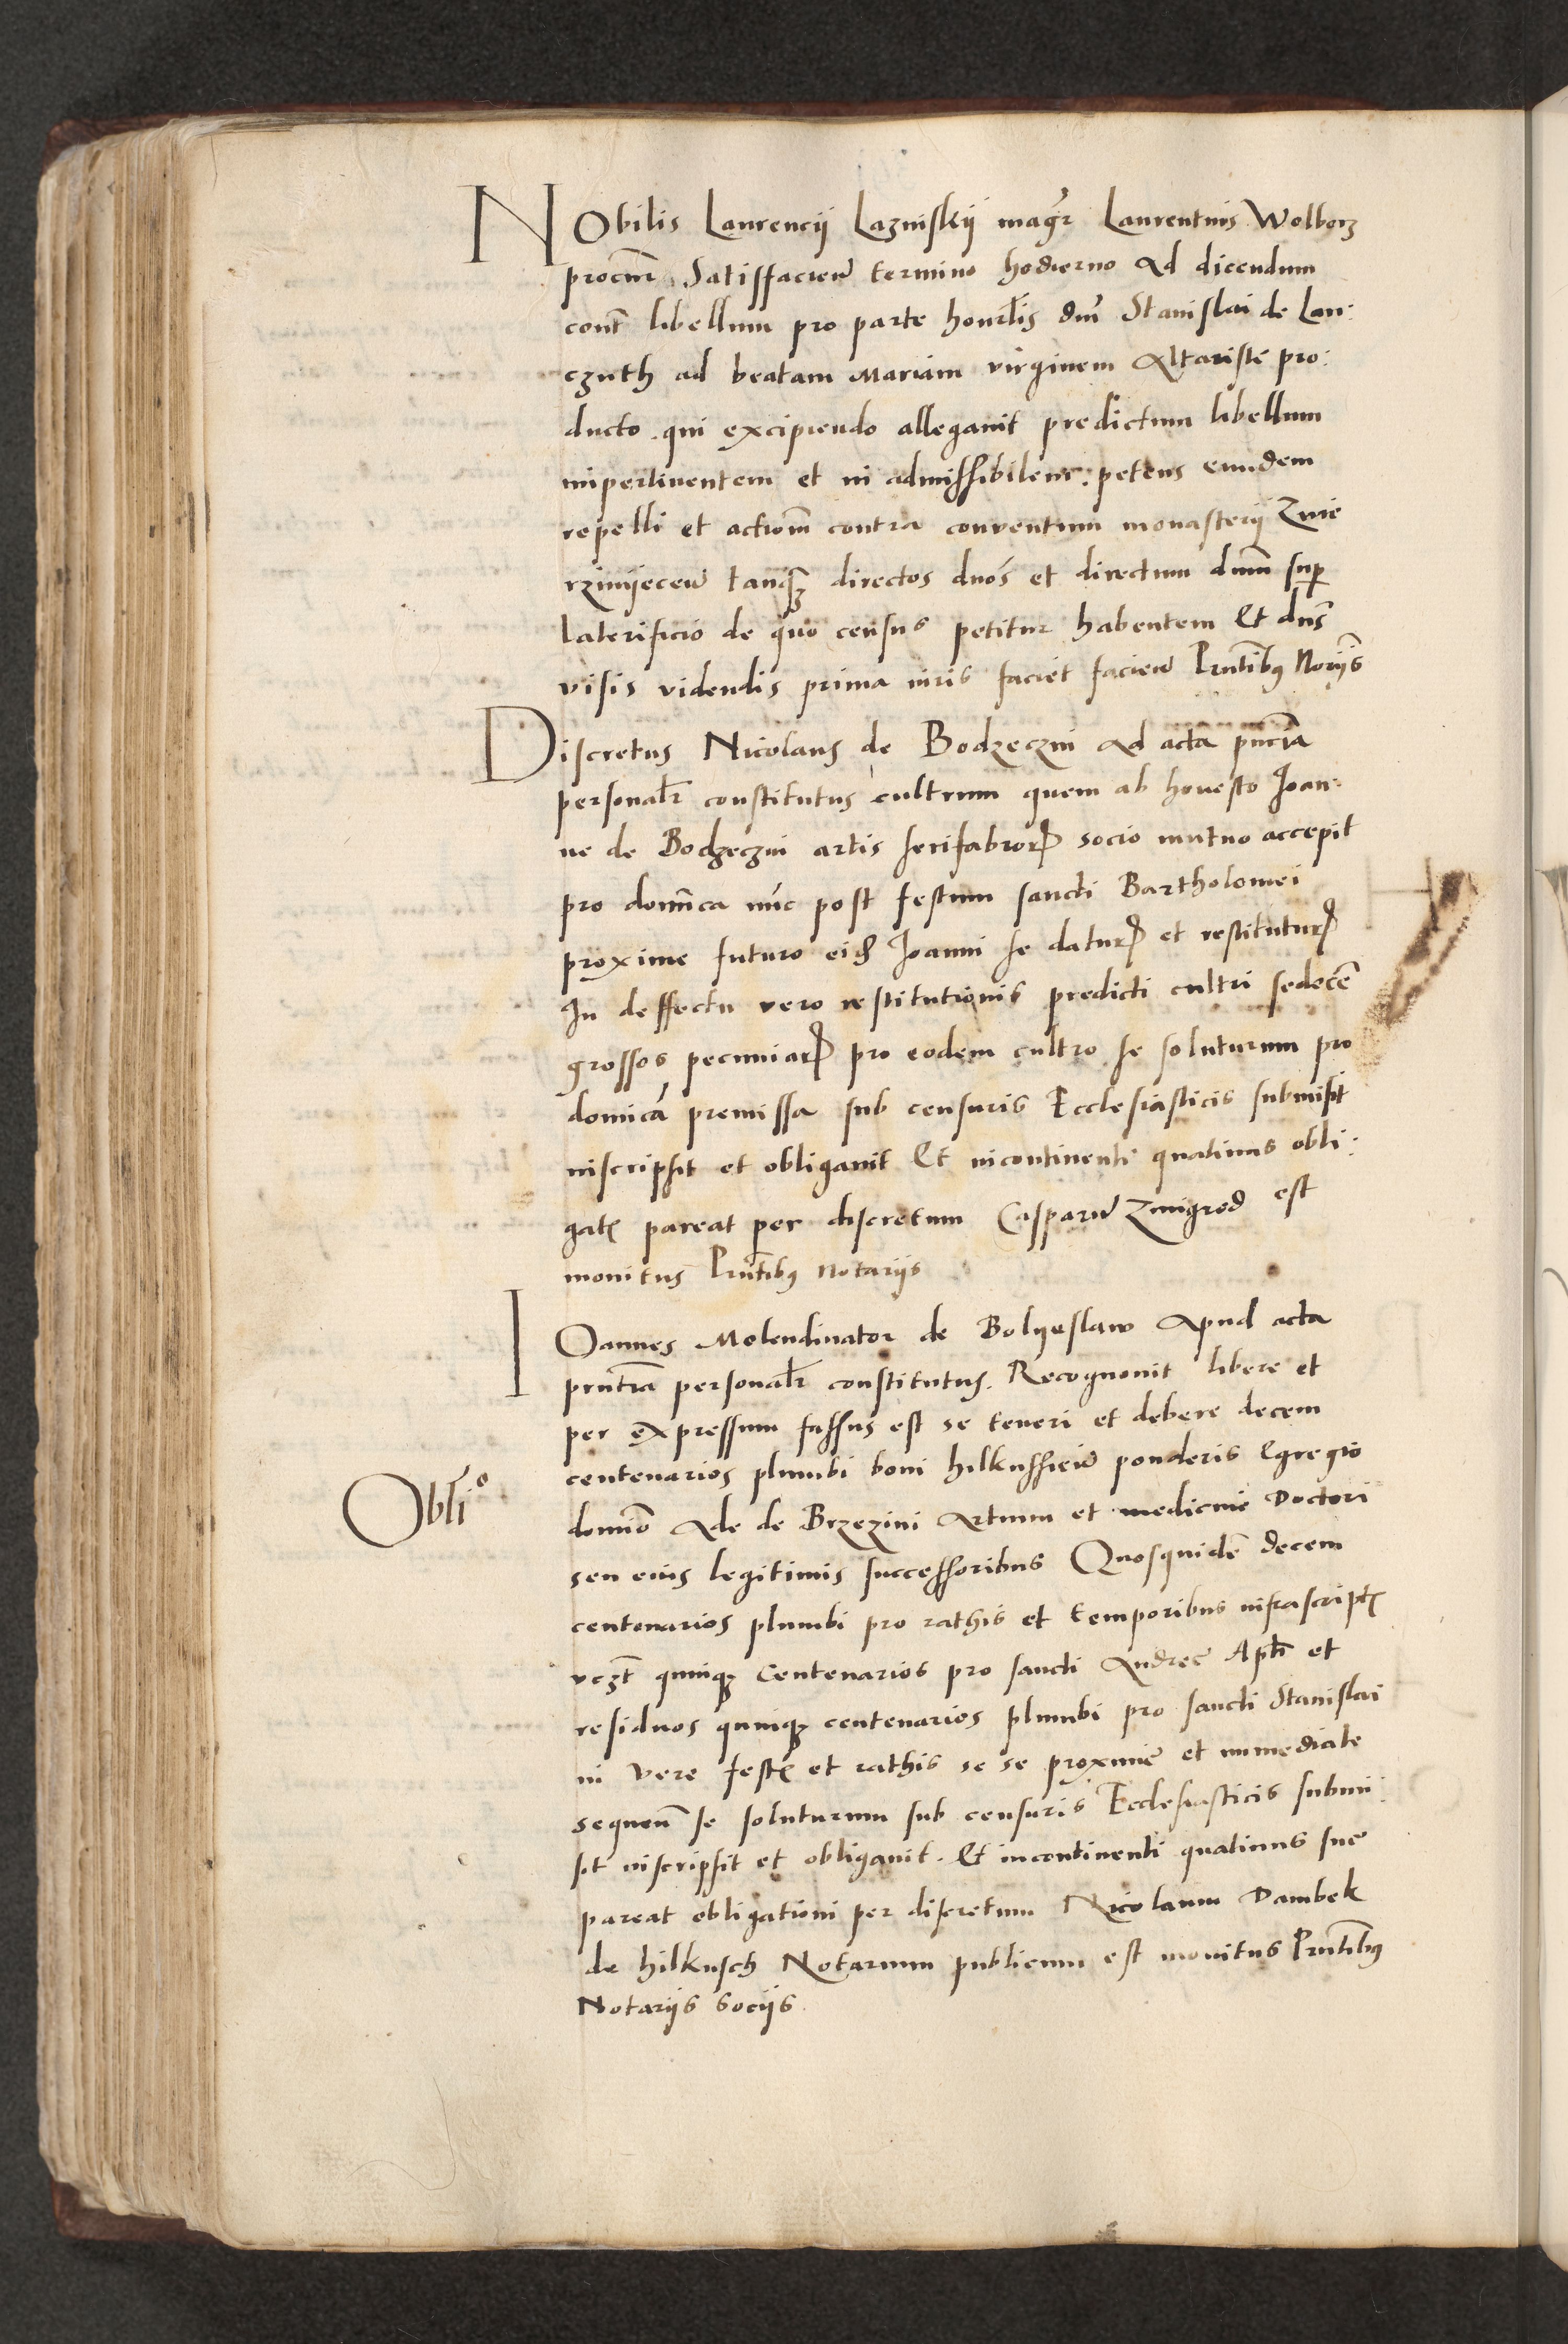 NObilis Laurencij Lazniskij magr̃ Laurentius Wolborz
procur̃ Satisffacieñ termino hodierno Ad dicendum
cont̃ libellum pro parte honrl̃is dñi Stanislai de Lan:
czuth ad beatam Mariam virginem Altariste pro:
ducto. qui excipiendo allegauit predictum libellum
impertinentem et in admissibilem: petens eundem
repelli et actiom̃ contra conventum monasterij Zwie
rzinijeceñ tanqʒ directos dnõs et directum dnm̃ sup̱
laterificio de quo census petitur habentem Et dns̃
visis videndis prima iuris faciet facieñ Pñtibus Norijs̃
Discretus Nicolaus de Bodzeczin Ad acta pñcia
personalr̃ constitutus cultrum quem ab honesto Joan:
ne de Bodzeczin artis serifabrorꝝ socio mutuo accepit
pro domĩca nũc post festum sancti Bartholomei
proxime futuro eiđ Joanni se daturꝝ et restituturꝝ
In deffectu vero restitutionis predicti cultri sedecẽ
grossos pecuniarꝝ pro eodem cultro se soluturum pro
domicã premissa sub censuris Ecclesiasticis submisit
inscripsit et obligauit Et incontinenti quatinus obli:
gatꝭ pareat per discretum Casparũ Zmigrod est
monitus Pñtibus notarijs
IOannes Molendinator de Bolyeslaw Apud acta
pñtia personalr̃ constitutus. Recognouit libere et
per expressum fassus est se teneri et debere decem
centenarios plumbi boni hilkussieñ ponderis Egregio
Obliº
domĩo Ade de Brzezini Artium et medicine Doctori
seu eius legitimis successoribus Quosquidẽ decem
centenarios plumbi pro rathis et temporibus infrascriptꝭ
vczt̃ quinqʒ Centenarios pro sancti Andree Apl̃i et
residuos quinqʒ centenarios plumbi pro sancti Stanislai
in vere festꝭ et rathis se se proxime et immediate
sequen̄ se soluturum sub censuris Ecclesiasticis submi:
sit inscripsit et obligauit. Et incontinenti quatinus sue
pareat obligationi per discretum Nicolaum Dambek
de hilkusch Notarium publicum est monitus Pñtibus
Notarijs socijs